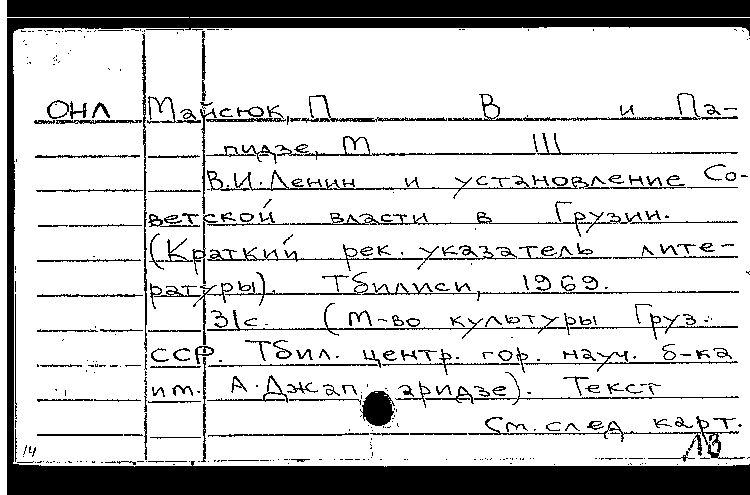 ОНЛ Майсюк, П В и Па-
пидзе, М Ш
В.И.Ленин и установление Со-
ветской власти в Грузии.
(Краткий рек. указатель лите-
ратуры). Тбилиси, 1969.
31с. (М-во культуры Груз.
ССР. Тбил. центр. гор. науч. б-ка
им. А.Джапаридзе). Текст
См. след. карт.
14 13